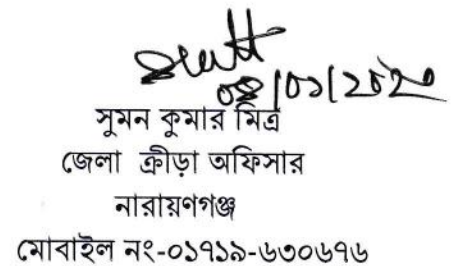 ০৪/০১/২০২০
সুমন কুমার মিত্র
জেলা ক্রীড়া অফিসার
নারায়ণগঞ্জ
মোবাইল নং-০১৭১৯-৬৩০৬৭৬